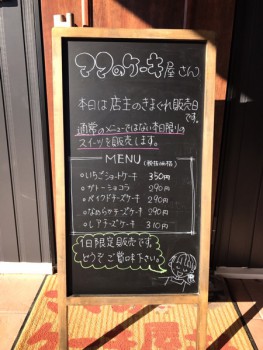 ママのケーキ屋さん
本日は店主のきまぐれ販売日
です。
通常のメニューではない本日限りの
スイーツを販売します。
MENU (税抜価格)
○いちごショートケーキ 350円
○ガトーショコラ 290円
○ベイクドチーズケーキ 290円
○なめらかチーズケーキ 290円
○レアチーズケーキ 310円
1日限定販売です。
どうぞご賞味下さい。